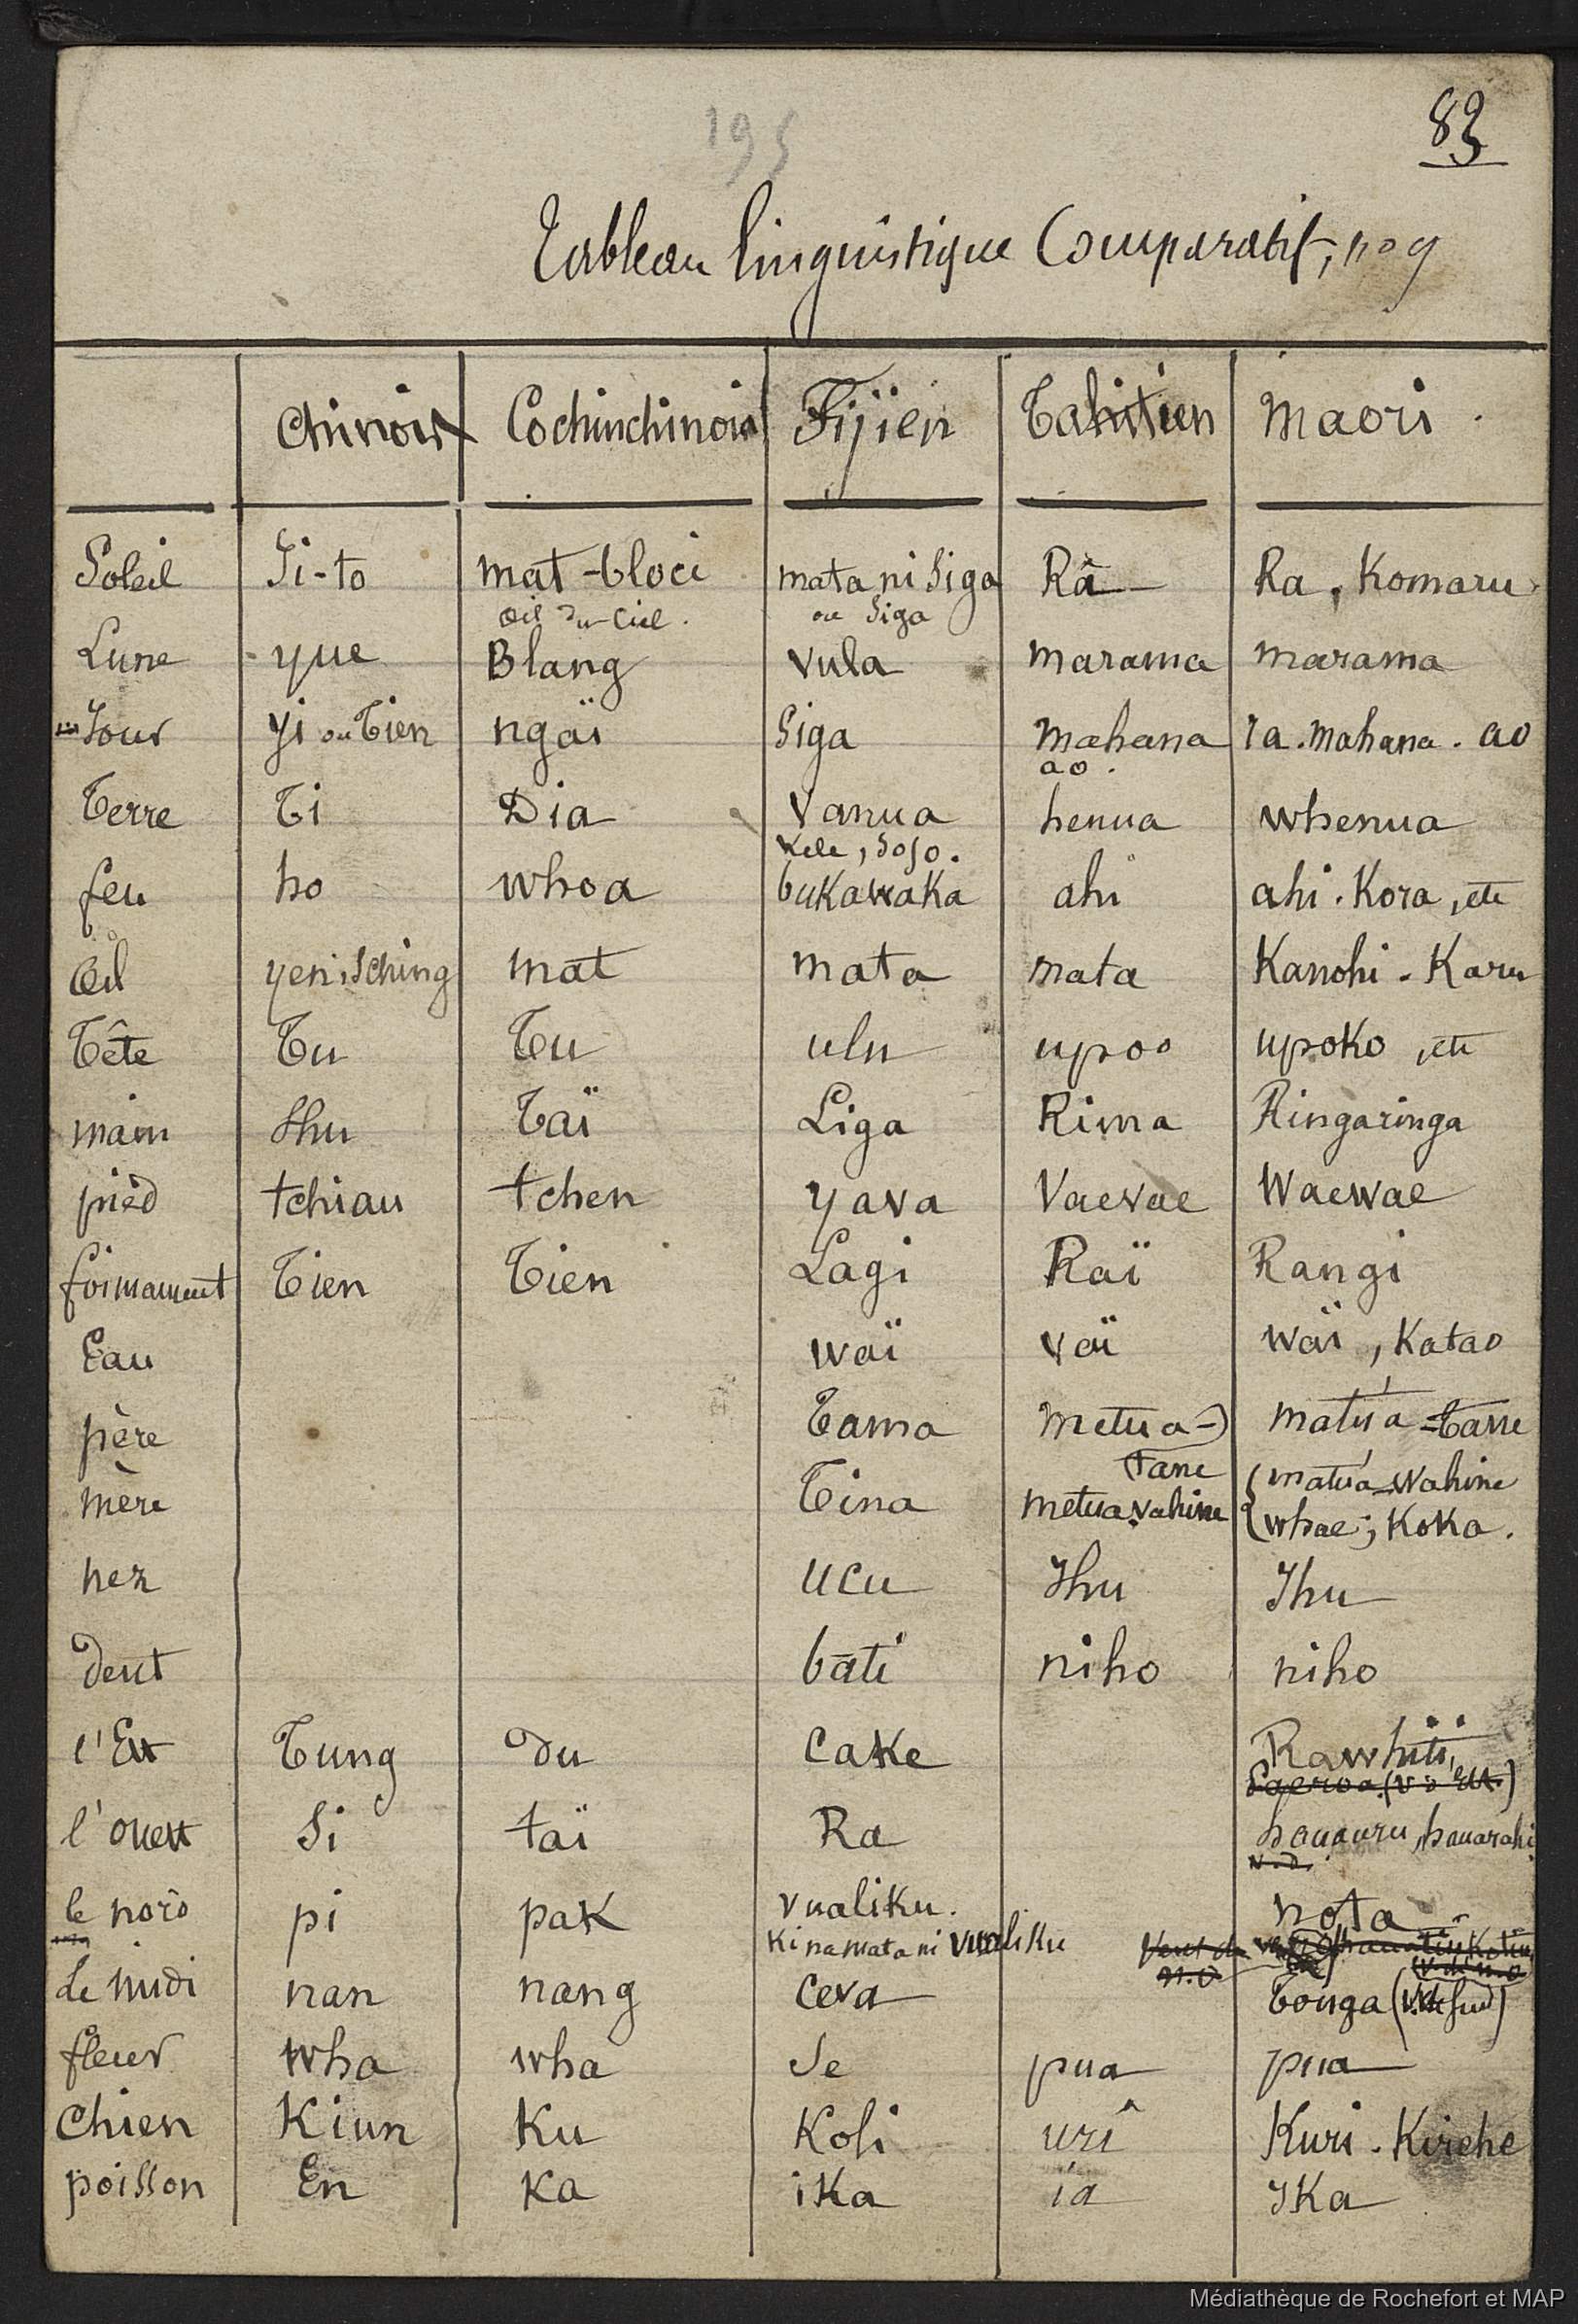 83
195
Tableau linguistique Comparatif, no 9
Chinois Cochinchinois Fijien Tahitien Maori
Soleil Ji-to mat-bloci mata ni Siga Râ Ra, Komaru
Œil du Ciel. ou Siga
Lune yue Blang vula marama marama
Jour yi ou Tien ngaï Siga mahana ra. mahana. ao
ao.
Terre Ti Dia Vanua henua whenua
Kele, Soso.
feu ho whoa bukawaka ahi ahi. Kora, etc
Œil yen, sching mat mata mata Kanohi - Karu
Tête Tu Tu ulu upoo upoko, etc
main Shu Taï Liga Rima Ringaringa
pied tchiau tchen yava Vaevae Waewae
firmament Tien Tien Lagi Raï Rangi
Eau waï vaï waï, Katao
père Tama metua- matúa-Tane
Tane
mère Tina metua vahine matúa-Wahine
whae; Koka.
nez ucu Ihu Ihu
dent bati niho niho
l'Est Tung du Cake Rawhiti,
l'ouest Si taï Ra hauauru, hauarahi
le nord pi pak vualiku. nota
Kinamata ni vualiku
Le midi nan nang Ceva Tonga (v. de sud)
fleur wha wha Se pua pua
Chien Kiun Ku Koli urî Kuri. Kirehe
poisson En Ka ika ia Ika
Médiathèque de Rochefort et MAP